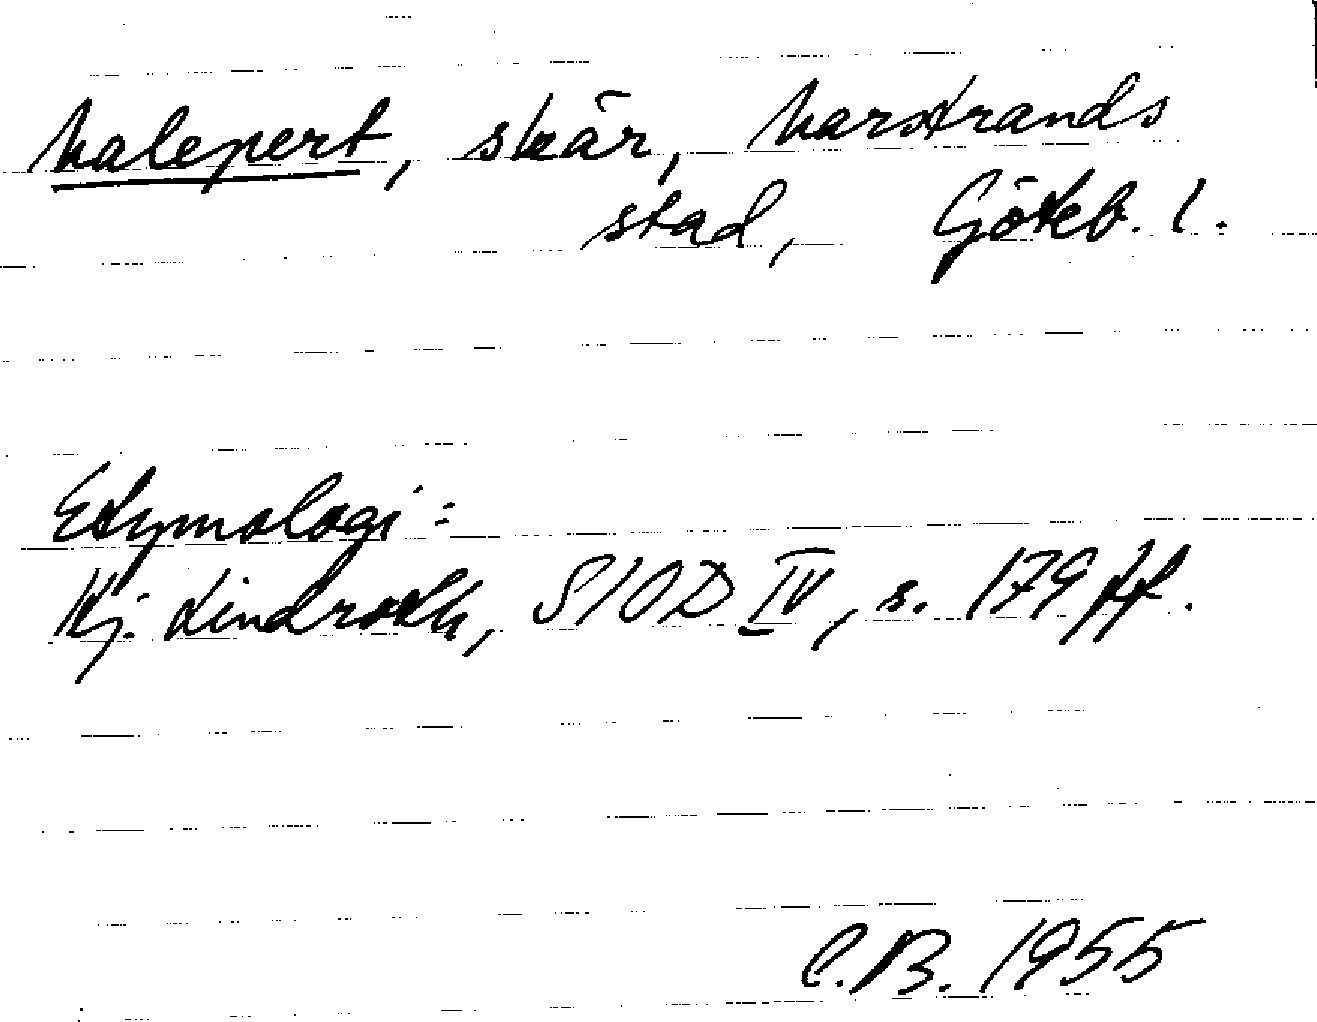 Malepert, skär, Marstrands
stad, Göteb. l.
Etymologi:
Hj. Lindroth, SIOD IV, s. 179 ff.
C.B. 1955